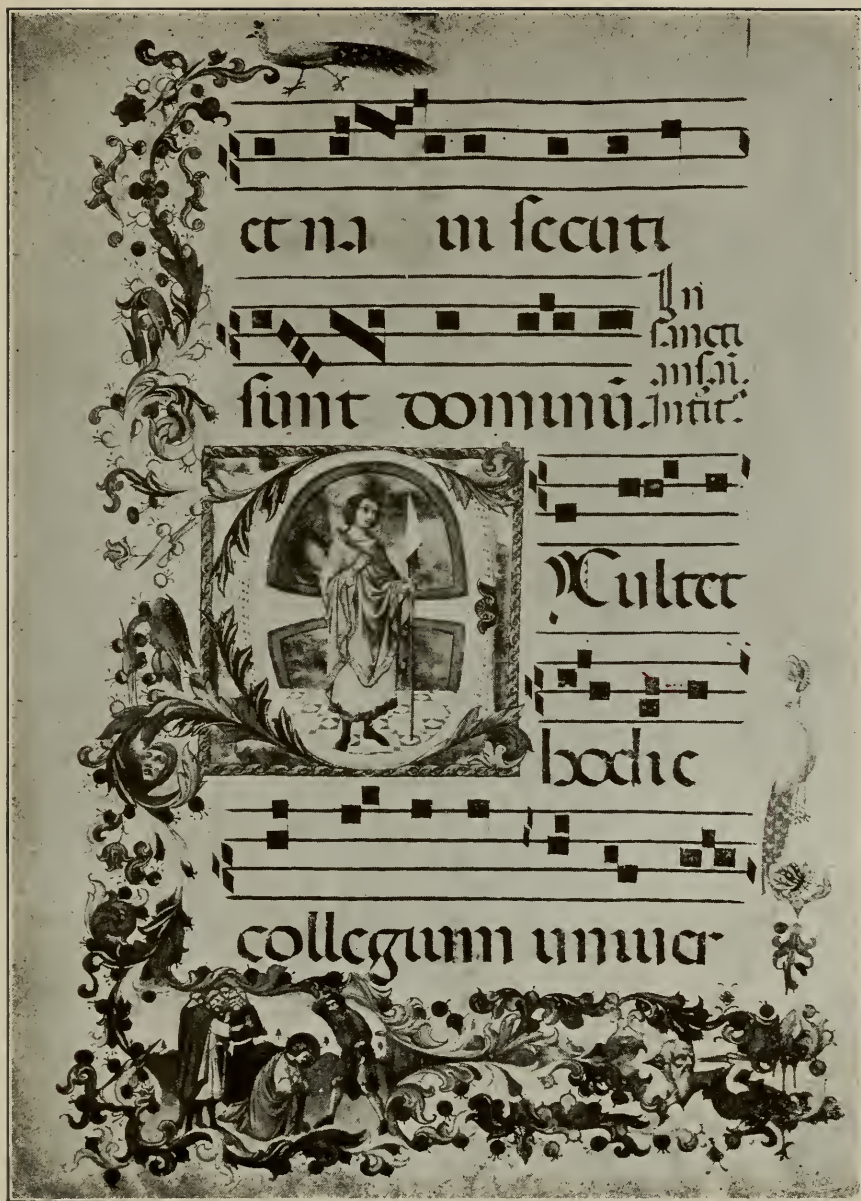 et na ui secuti
sunt dominū.
In
sancti
ansãi.
EXultet
hodie
collegium uniuer